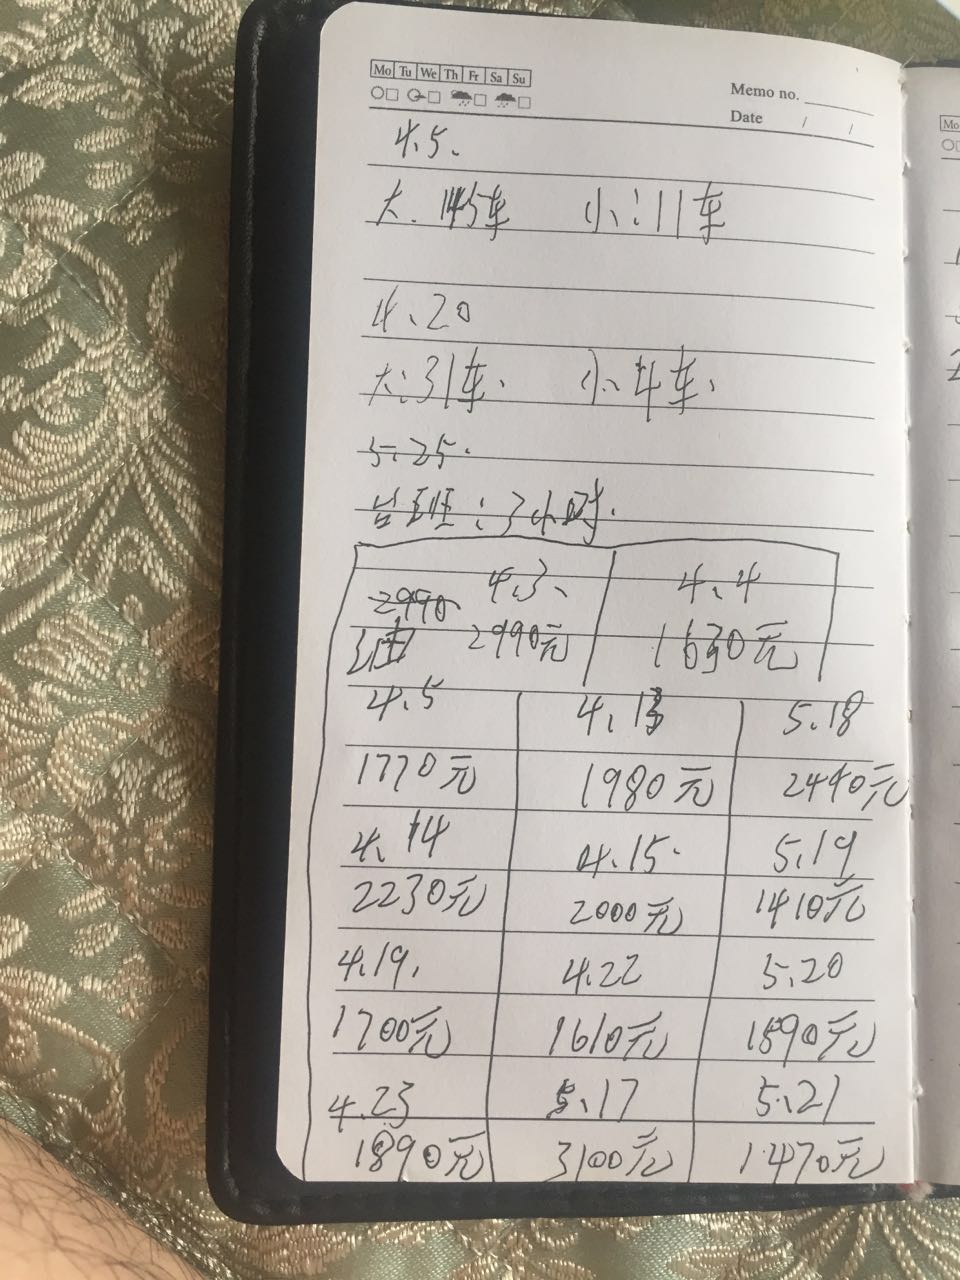 Mo Tu We Th Fr Sa Su
Memo no.
Date / /
4.5.
大.45车 小:11车
4.20
大:31车. 小.4车.
5.25.
台班:3小时.
2990 4.3. 4.4
2990元 1630元
4.5 4.13 5.18
1770元 1980元 2440元
4.14 4.15. 5.19
2230元 2000元 1410元
4.19. 4.22 5.20
1700元 1610元 1890元
4.23 5.17 5.21
1890元 3100元 1470元
Mo